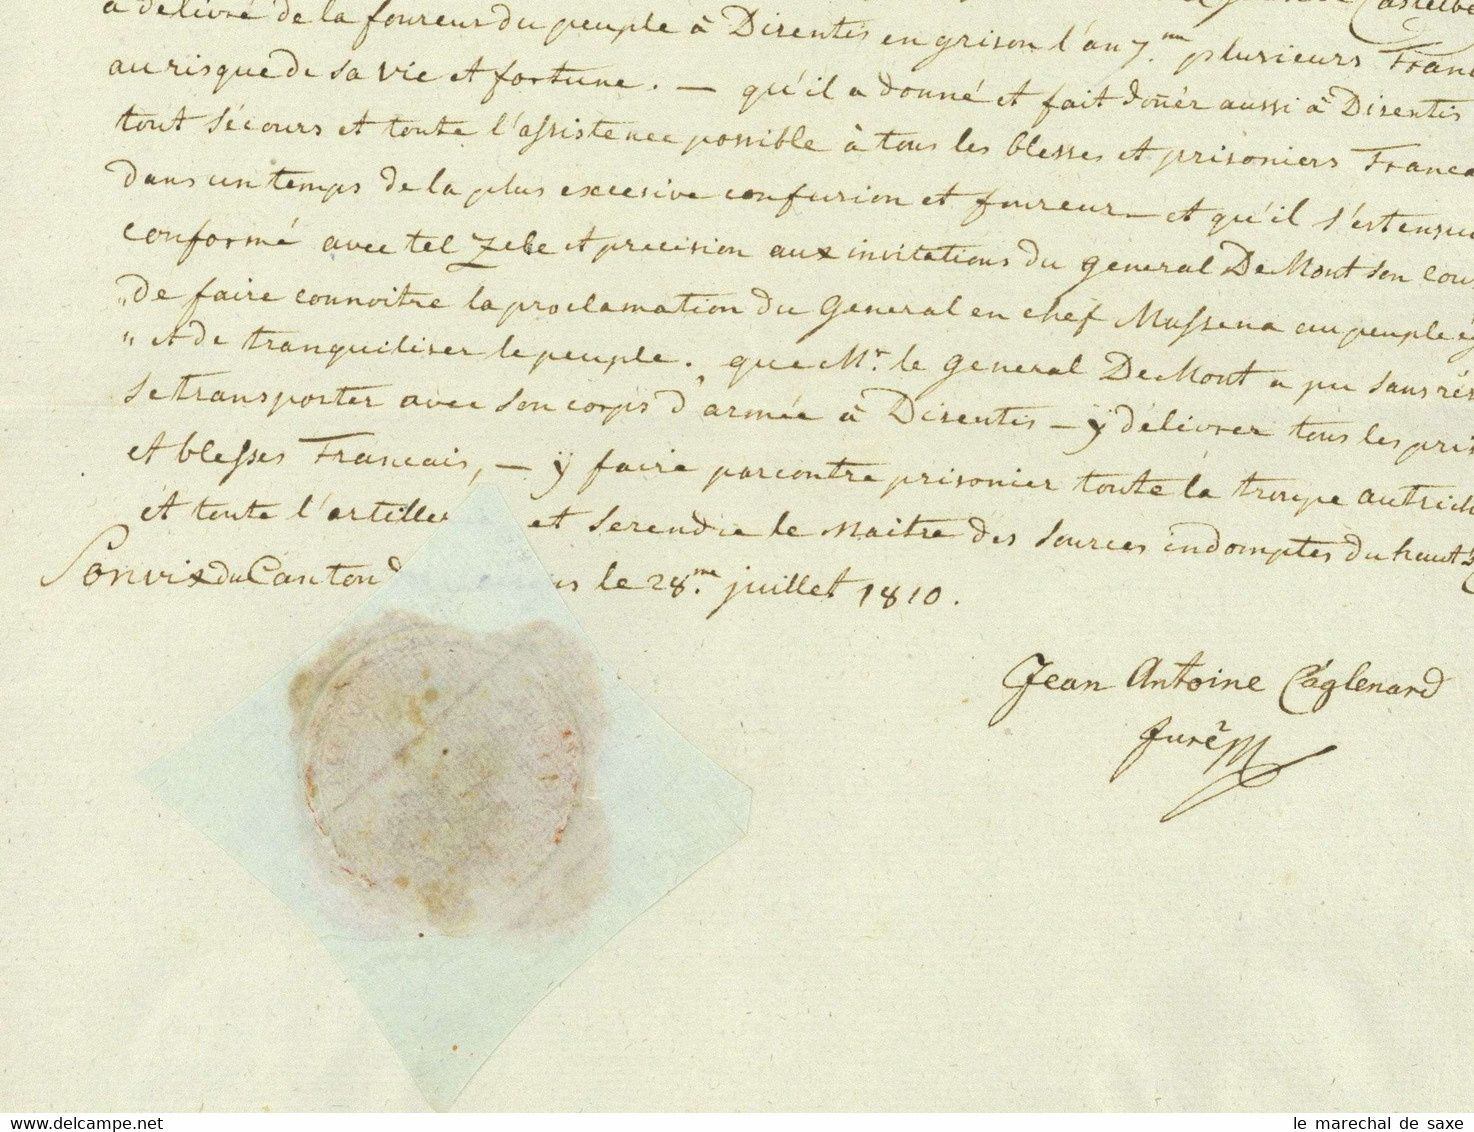 a délivré de la foureur du peuple à Disentis en grison l'an 7.me plusieurs Franc
au risque de sa vie et fortune. — qu'il a donné et fait doñér aussi à Disentis
tout sécours et toute l'assistence possible à tous les blesses et prisoniers Franca
dans un temps de la plus excesive confusion et foureur — et qu'il s'est ensu
conformé avec tel zele et precision aux invitations du general De Mont son cou
„ de faire connoitre la proclamation du General en chef Massena au peuple
„ et de tranquiliser le peuple. que Mr. le general De Mont a pu sans rés
se transporter avec son corps d'armée à Disentis — ÿ délivrer tous les pris
et blesses Francais, — ÿ faire parcontre prisonier toute la troupe autrich
et toute l'artille et se rendre le maitre des sources indomptes du haut
Sonvix du Canton le 28.me juillet 1810.
Jean Antoine Cáglenard
Juré
www.delcampe.net
le marechal de saxe